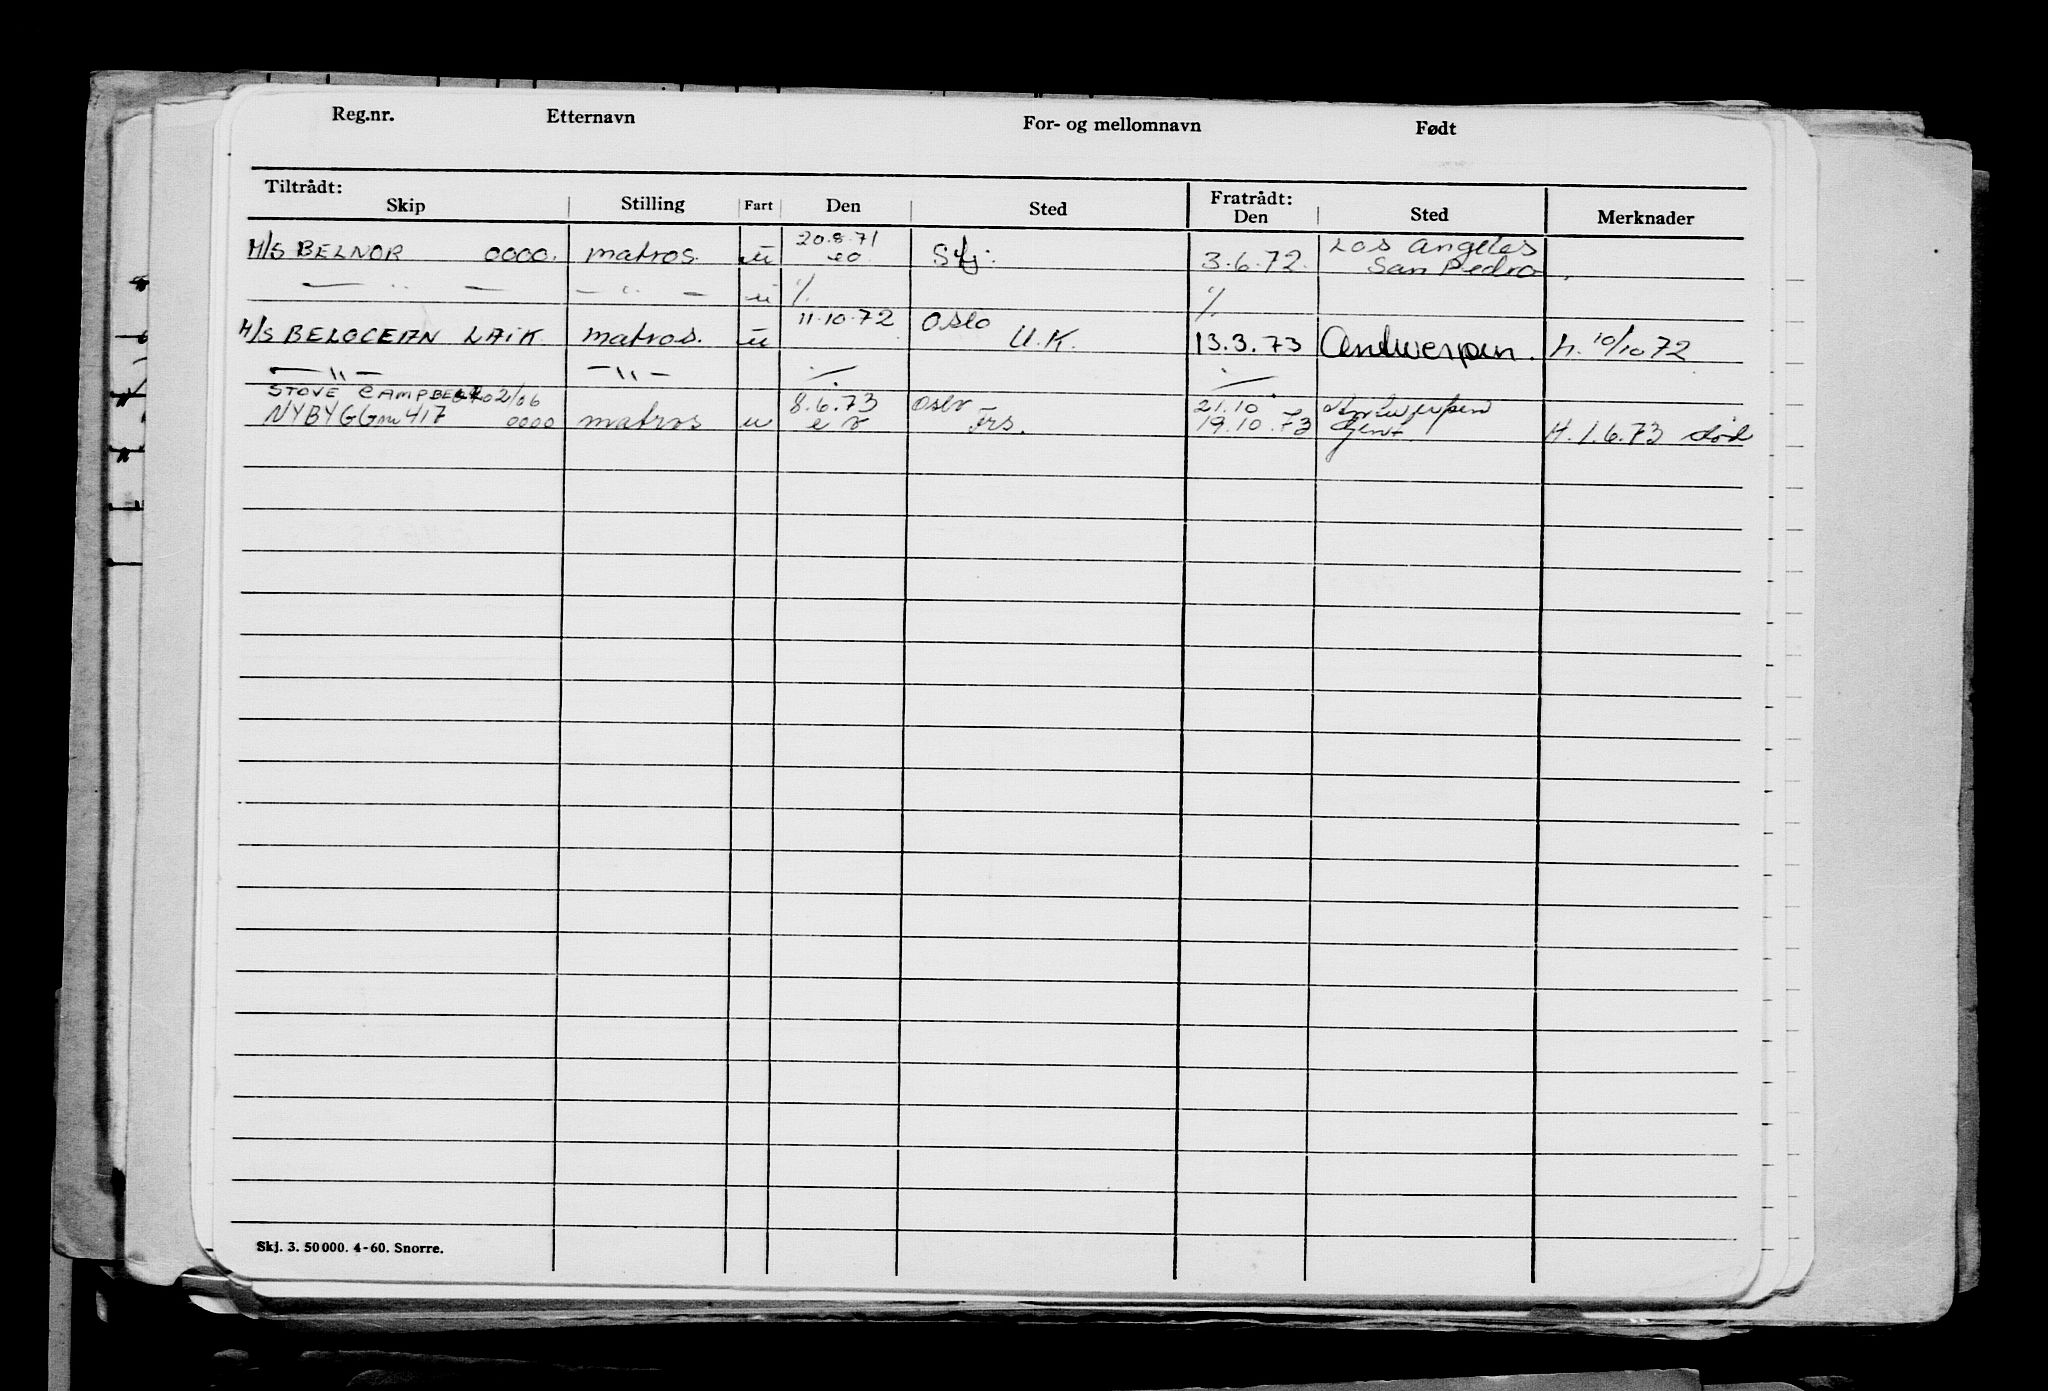 Reg.nr. Etternavn For- og mellomnavn Født
Tiltrådt: Fratrådt:
Skip Stilling Fart Den Sted Den Sted Merknader
20.8.71 Los Angeles
M/S BELNOR 0000. matros. u Sfj. 3.6.72. San Pedro
— " — — " — u ٪ ٪
11.10.72 Oslo
M/S BELOCEAN LAIK matros. u U.K. 13.3.73 Antwerpen. h. 10/10 72
— " — — " —
STOVE CAMPBELL 02/06 8.6.73 Oslo 21.10 Antwerpen
NYBYGG nr 417 0000 matros u Frs. 19.10.73 Gent H. 1.6.73
Skj. 3. 50000. 4-60. Snorre.